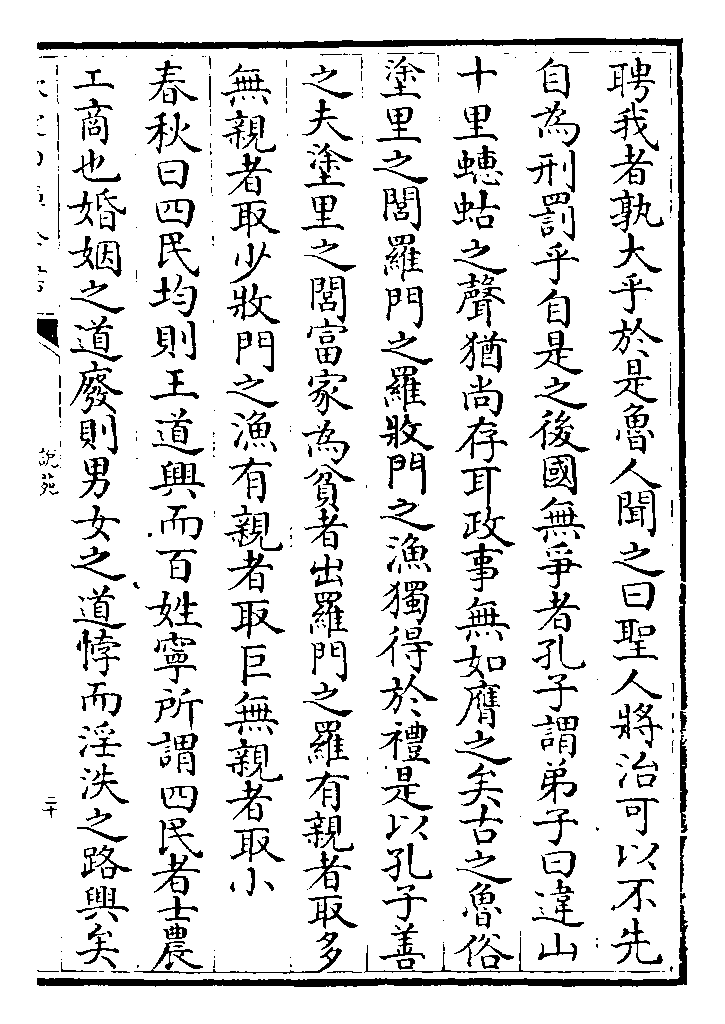 聘我者孰大乎於是魯人聞之曰聖人將治可以不先
自為刑罰乎自是之後國無爭者孔子謂弟子曰違山
十里蟪蛄之聲猶尚存耳政事無如膺之矣古之魯俗
塗里之閭羅門之羅收門之漁獨得於禮是以孔子善
之夫塗里之閭富家為貧者出羅門之羅有親者取多
無親者取少收門之漁有親者取巨無親者取小
春秋曰四民均則王道興而百姓寧所謂四民者士農
工商也婚姻之道廢則男女之道悖而淫泆之路興矣
說苑
二十